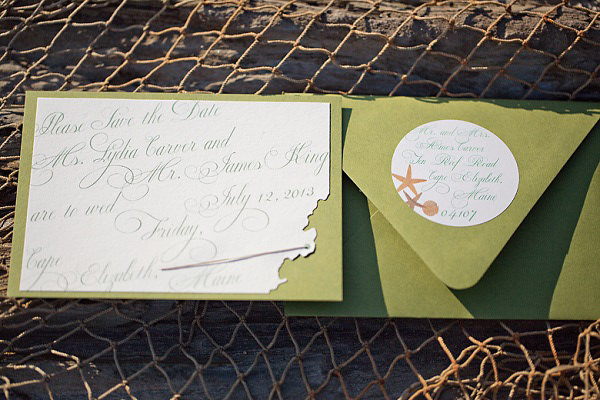 Please Save the Date
Ms. Lydia Carver and
Mr. James King
are to wed
July 12, 2013
Friday,
Cape Elizabeth, Maine
Mr. and Mrs.
Carver
Ten Reef Road
Cape Elizabeth,
Maine
04107